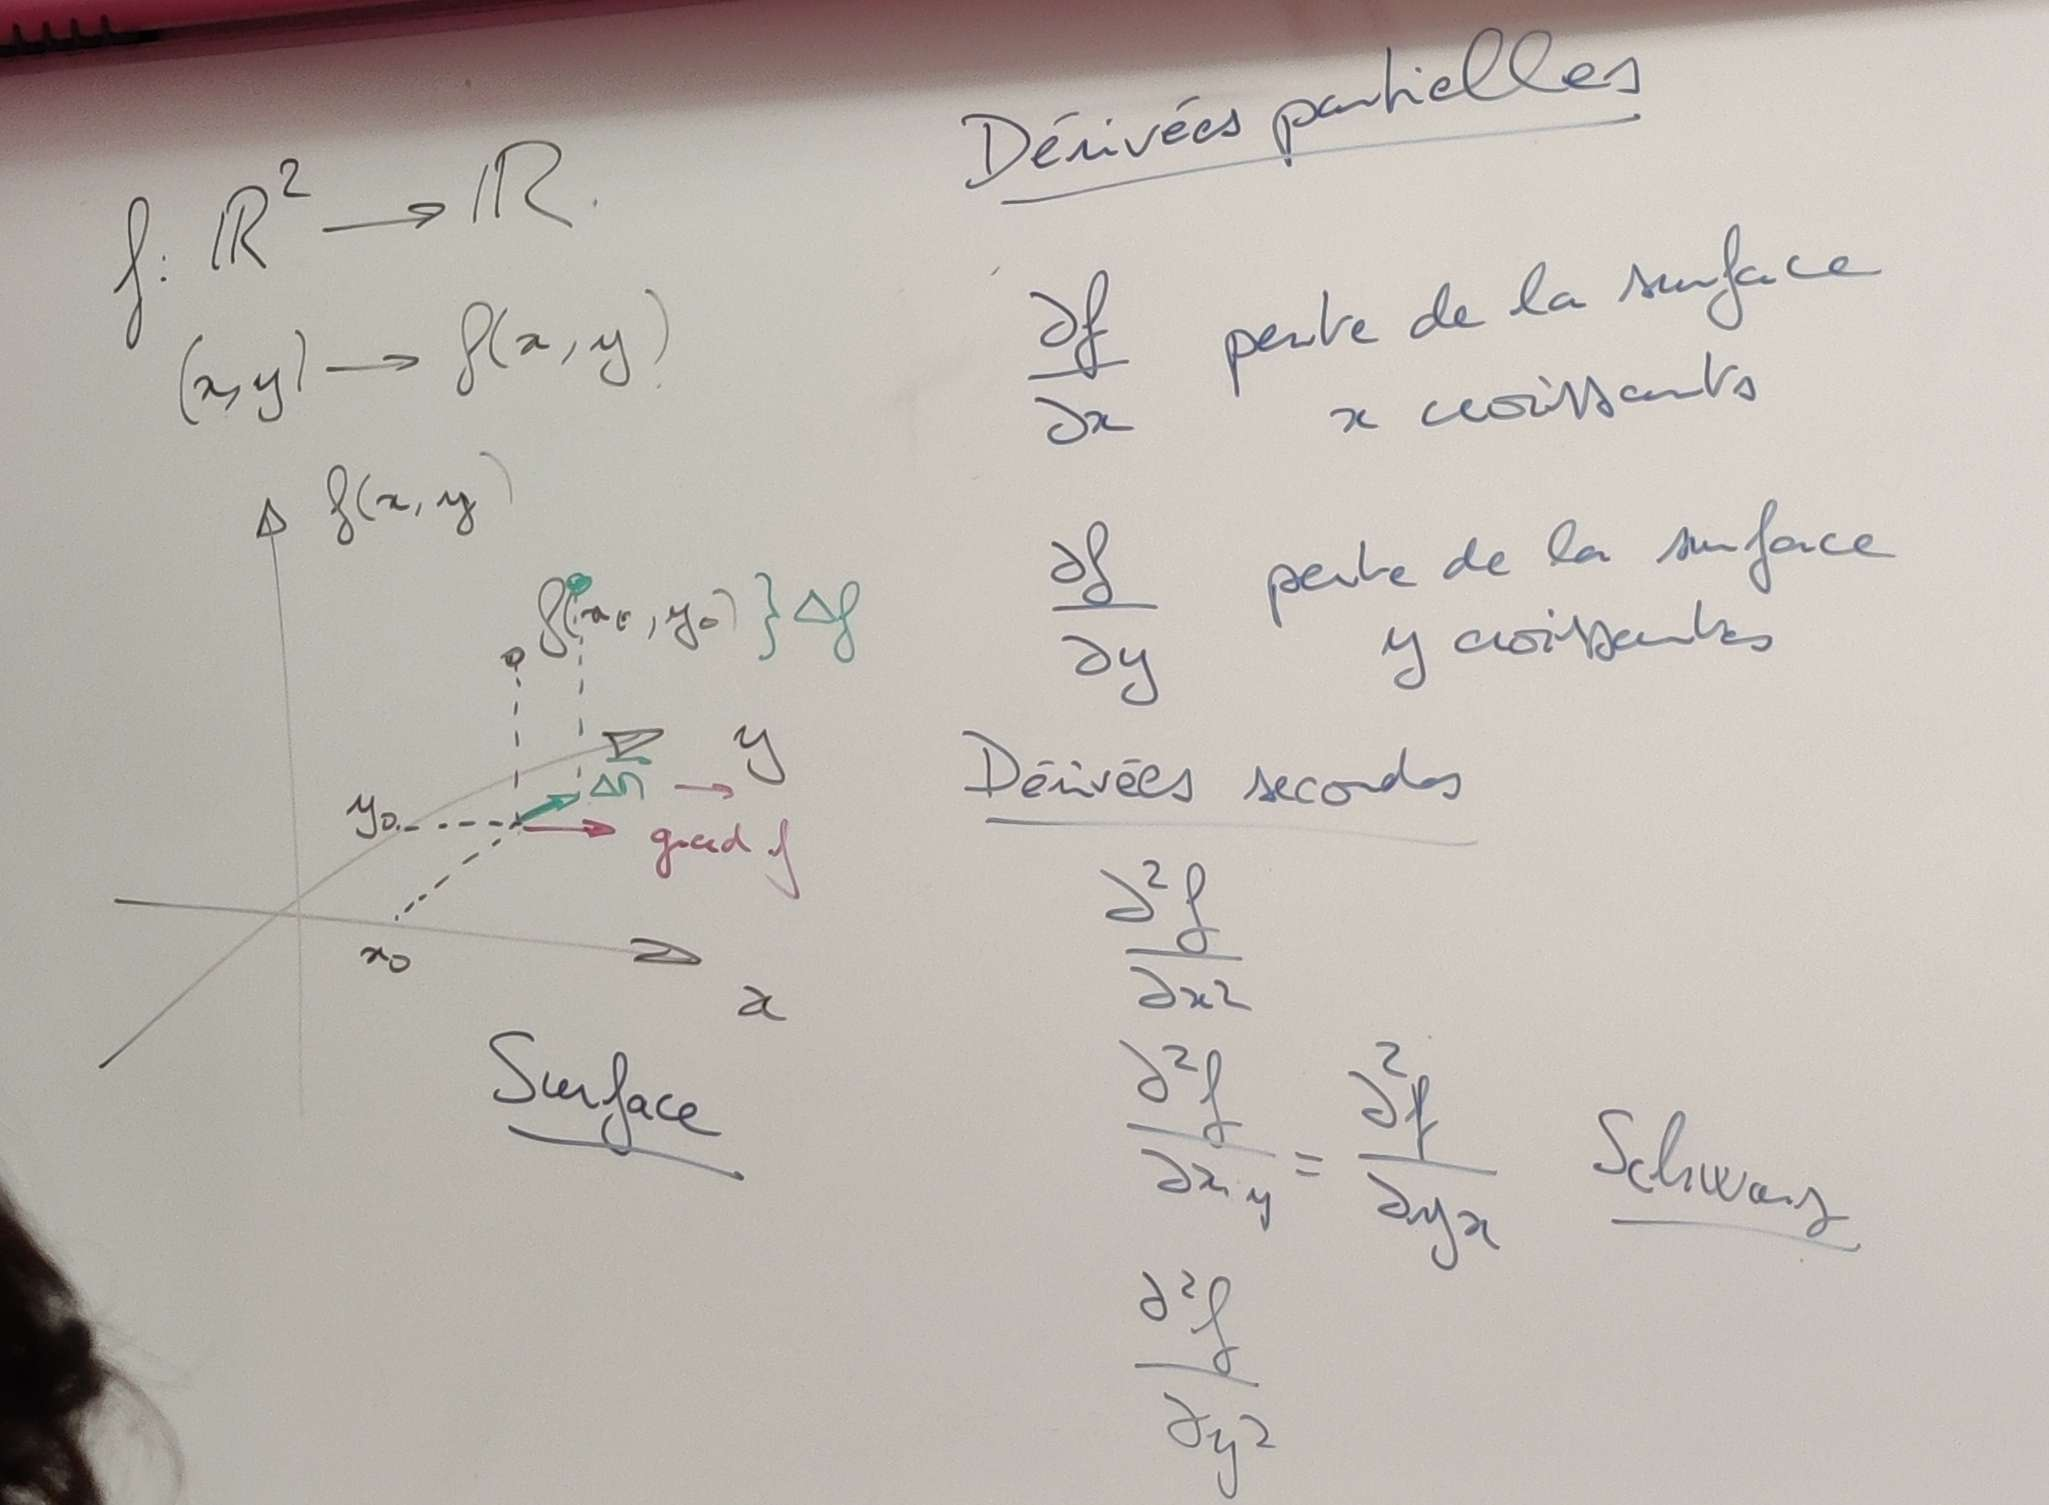 f: ℝ² → ℝ.
(x,y) → f(x,y)
f(x,y)
f(x₀, y₀) } Δf
y
y₀
grad f
x₀
x
Surface
Dérivées partielles
∂f/∂x pente de la surface
x croissants
∂f/∂y pente de la surface
y croissantes
Dérivées secondes
∂²f/∂x²
∂²f/∂x,y = ∂²f/∂yx Schwarz
∂²f/∂y²